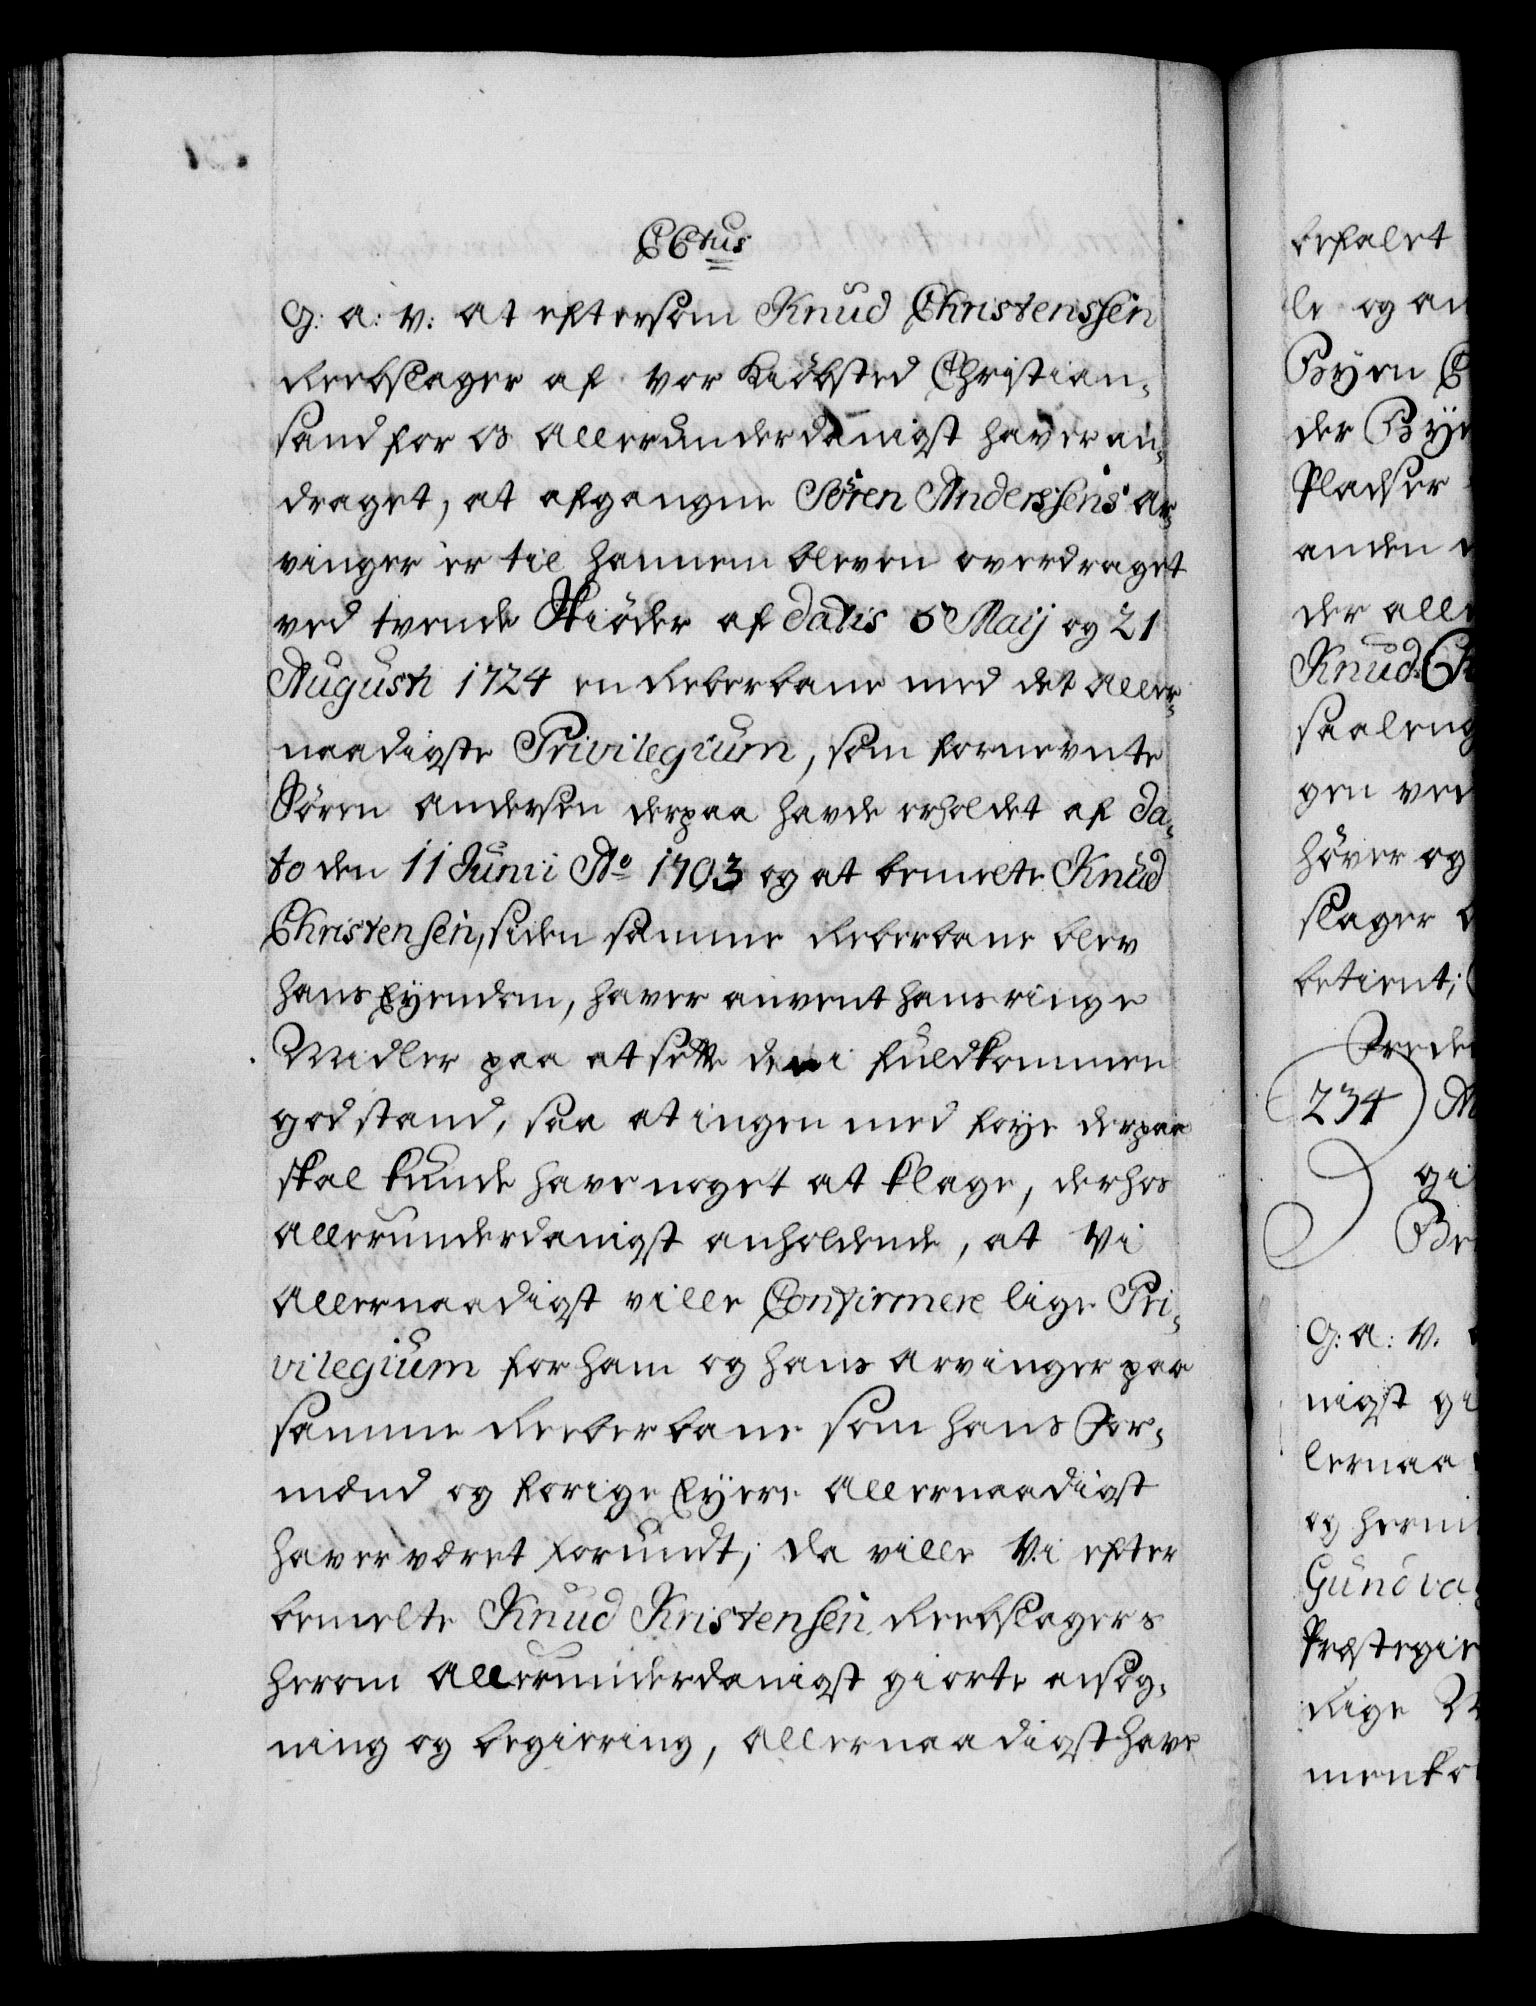 CCtus
G: a: v: at eftersom Knud Christenssen
Reebslager af vor Kiöbsted Christian,
sand for os allerunderdanigst haver an,
draget, at afgangne Sören Anderssens ar,
vinger er til hannem bleven overdraget
ved tvende Skiöder af datis 6 Maij og 21
Augusti 1724 en Reberbane med det aller,
naadigste Privilegium, som fornevnte
Sören Andersen derpaa havde erholdet af da,
to den 11 Junii Ao 1703 og at bemelte Knud
Christensen, siden samme Reberbane blev
hans Eyendom, haver anvent hans ringe
Midler paa at sette den i fuldkommen
god stand, saa at ingen med foye derpaa
skal kunde have noget at klage, derhos
allerunderdanigst anholdende, at Vi
allernaadigst ville Confirmere lige Pri,
vilegium for ham og hans arvinger paa
samme Reeberbane som hans For,
mænd og forige Eyere allernaadigst
haver været forundt; da ville Vi efter
bemelte Knud Kristensen Reebslagers
herom allerunderdanigst giorte ansøg,
ning og begiering, allernaadigst have
befalet
le og an
Byen
der Bye
Pladser
anden
der alle
Knud Ch
saaleng
gen ved
höver og
slager
betient;
Frede
234
gi
Bre
G: a: V.
nigst gi
lernaa
og herm
Gundva
Præstegie
Rige
menko